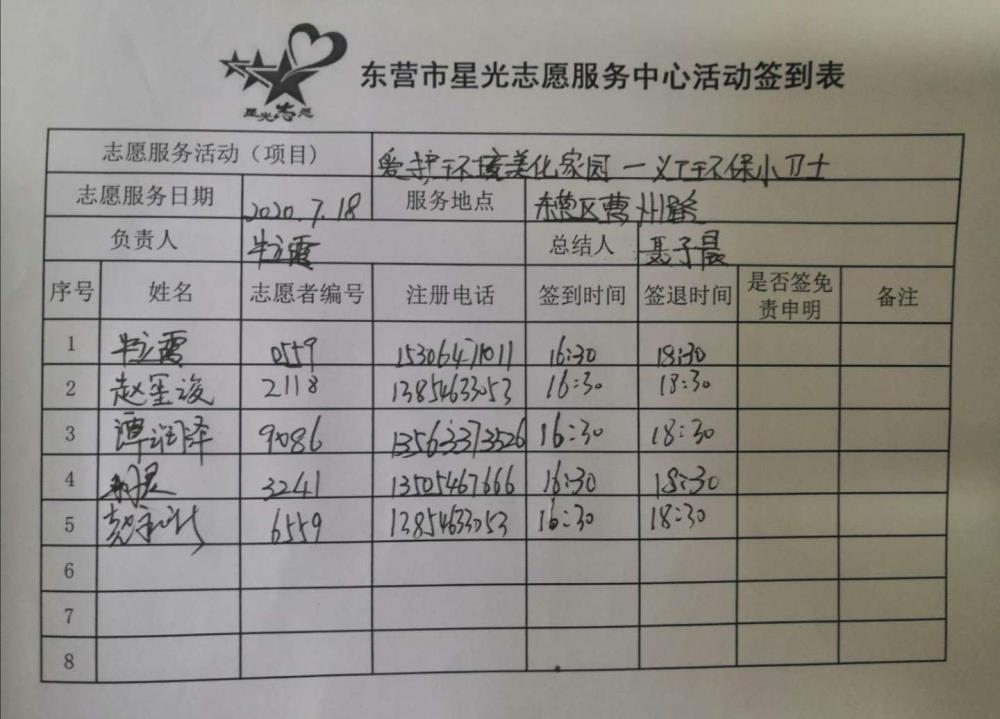 星光志愿
东营市星光志愿服务中心活动签到表
志愿服务活动（项目） 爱护环境美化家园 一义工环保小卫士
志愿服务日期 2020.7.18 服务地点 东营区曹州路
负责人 牛立霞 总结人 聂子晨
序号 姓名 志愿者编号 注册电话 签到时间 签退时间 是否签免责申明 备注
1 牛立霞 0559 15306471011 16:30 18:30
2 赵星浚 2118 13854633053 16:30 18:30
3 谭润泽 9086 13563373526 16:30 18:30
4 3241 13505467666 16:30 18:30
5 6559 13854633053 16:30 18:30
6
7
8